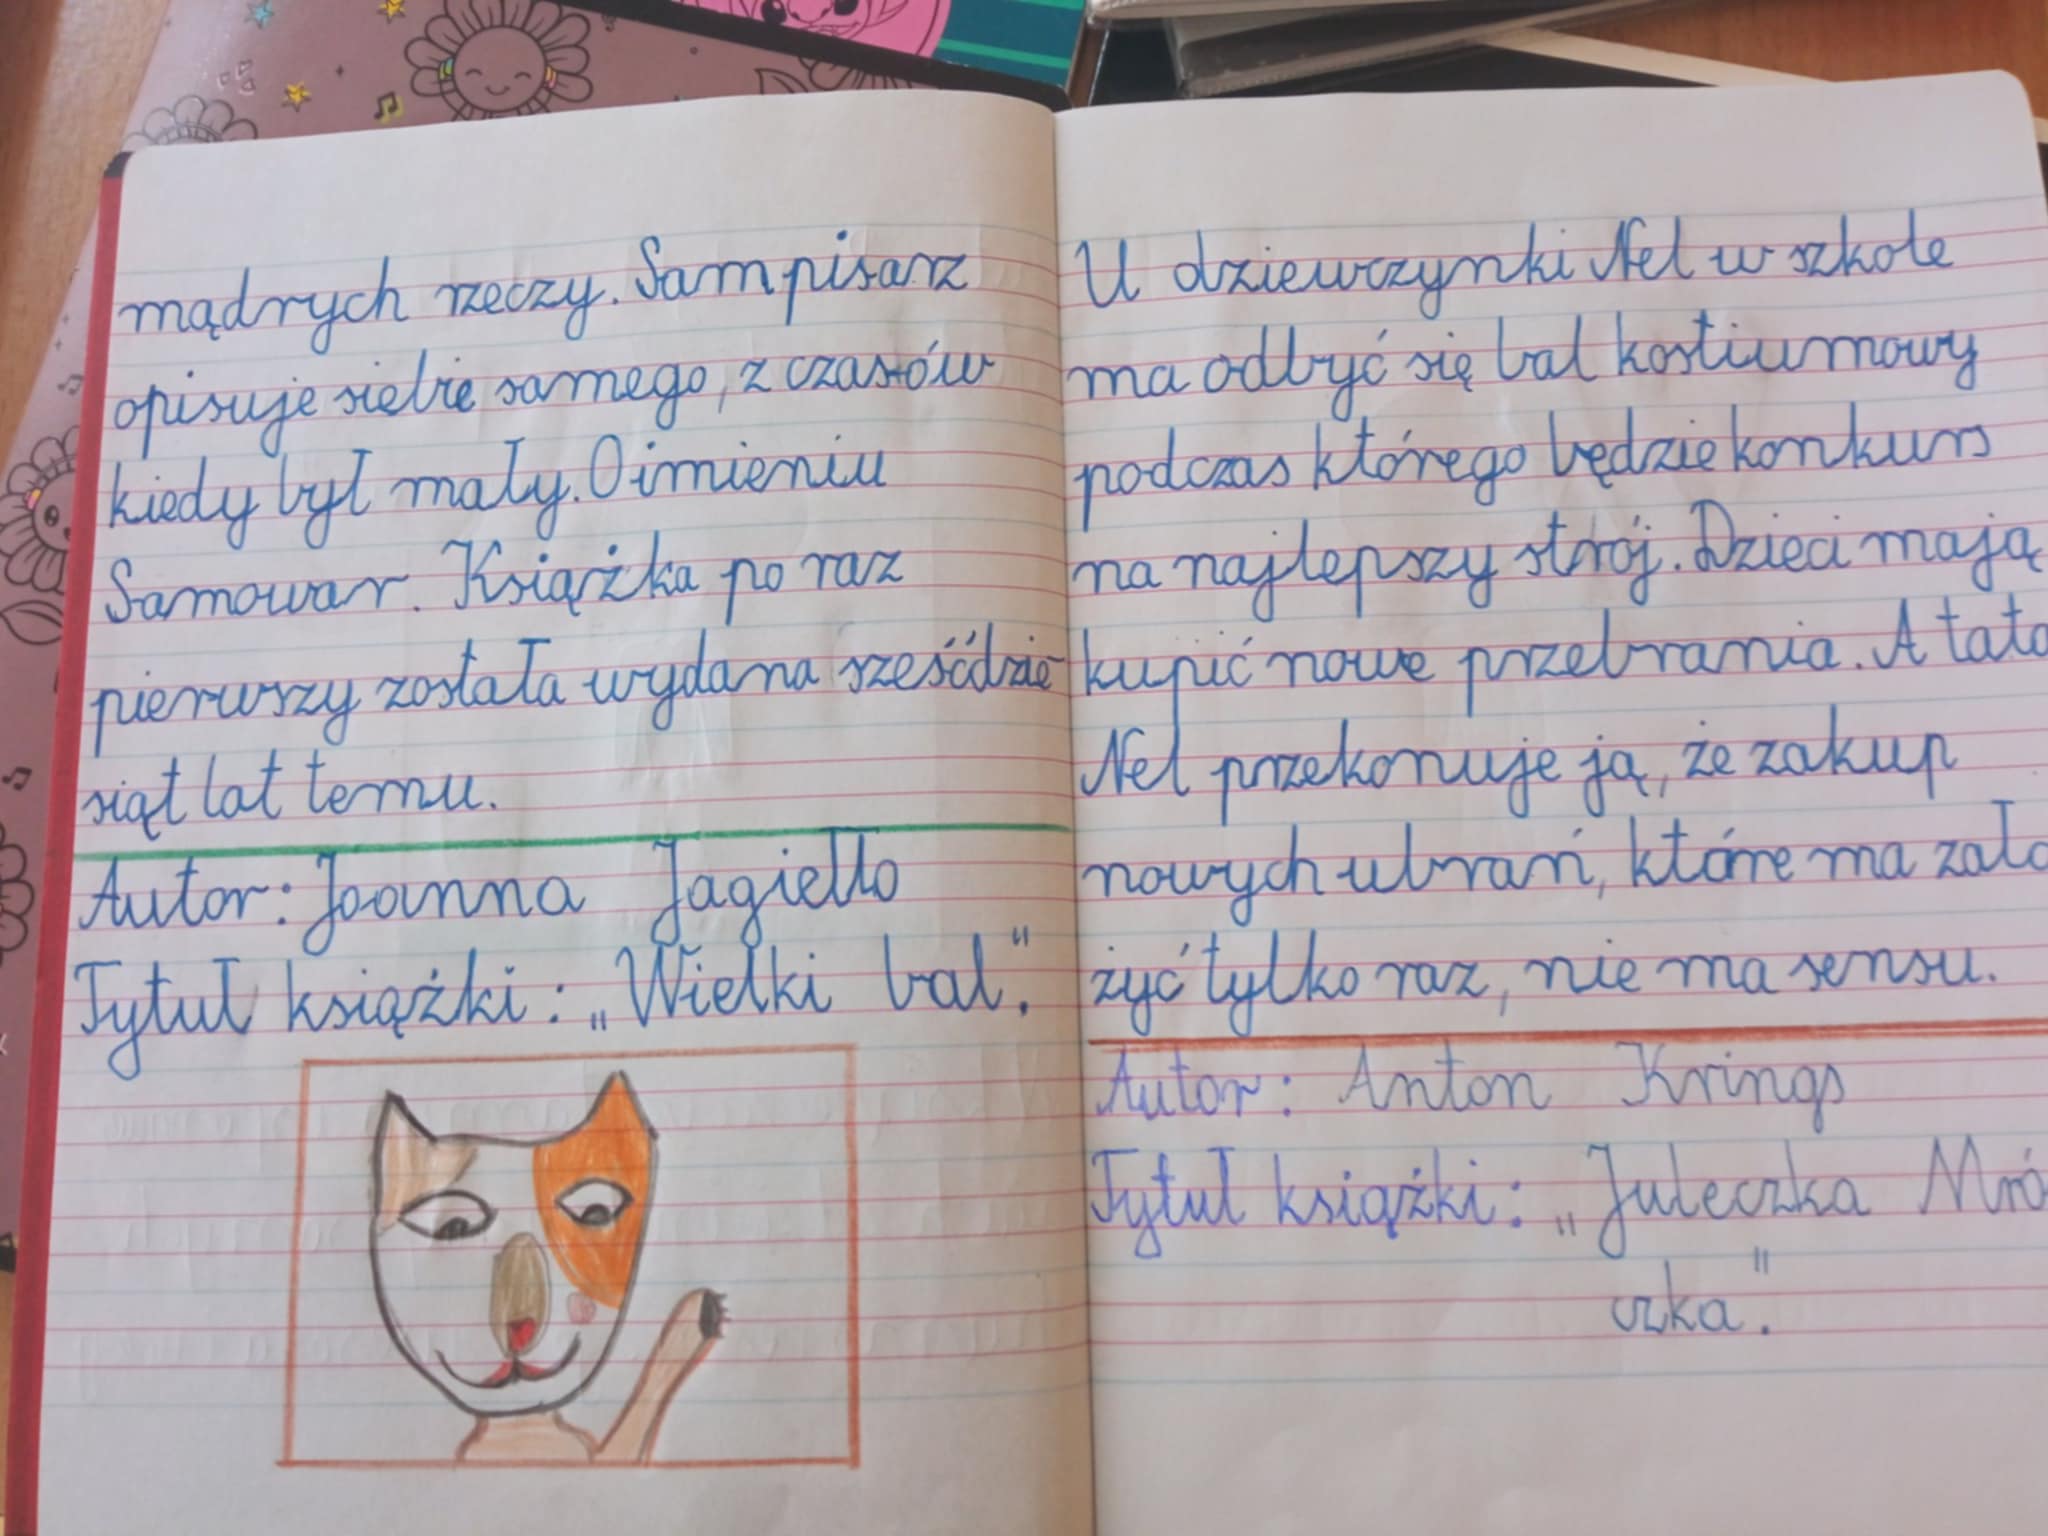 mądrych rzeczy. Sam pisarz
opisuje siebie samego, z czasów
kiedy był mały. O imieniu
Samowar. Książka po raz
pierwszy została wydana sześćdzie
siąt lat temu.
Autor: Joanna Jagiełło
Tytuł książki: „Wielki bal".
U dziewczynki Nel w szkole
ma odbyć się bal kostiumowy
podczas którego będzie konkurs
na najlepszy strój. Dzieci mają
kupić nowe przebrania. A tata
Nel przekonuje ją, że zakup
nowych ubrań, które ma zało
żyć tylko raz, nie ma sensu.
Autor: Anton Krings
Tytuł książki: „Juleczka Mró
czka".